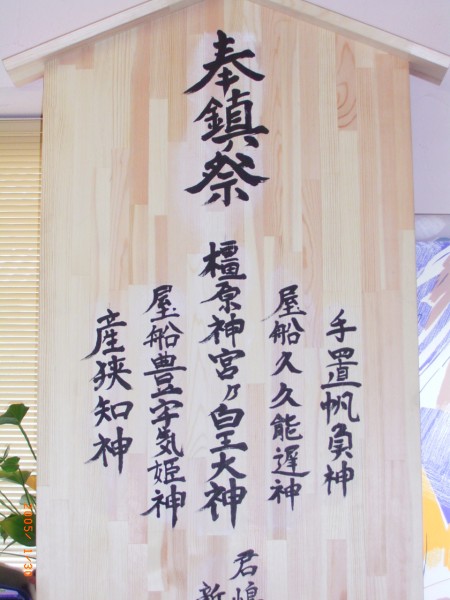 奉鎮祭
手置帆負神
屋船久久能遅神
橿原神宮乃皇大神
屋船豊宇気姫神
産狭知神
君
新
2005/ 1/3